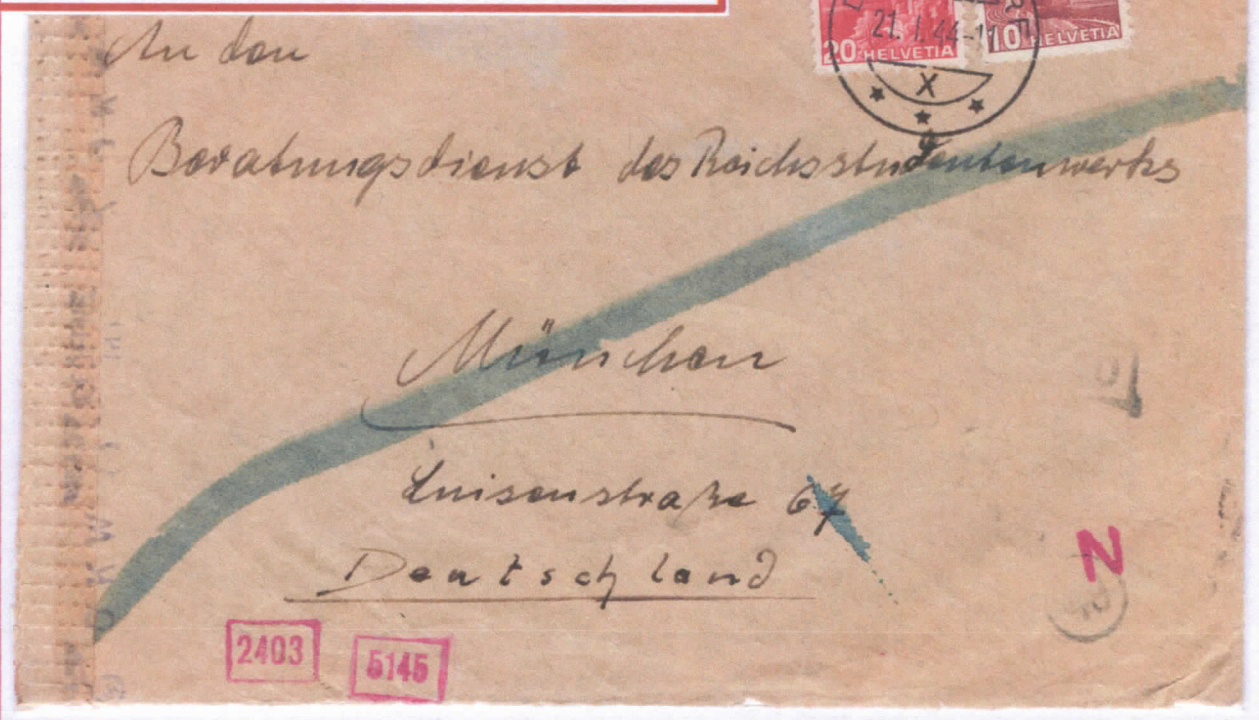 20 HELVETIA
10 HELVETIA
21. I. 44-11
X
An den
Beratungsdienst des Reichsstudentenwerks
München
Luisenstraße 67
Deutschland
N
2403
5145